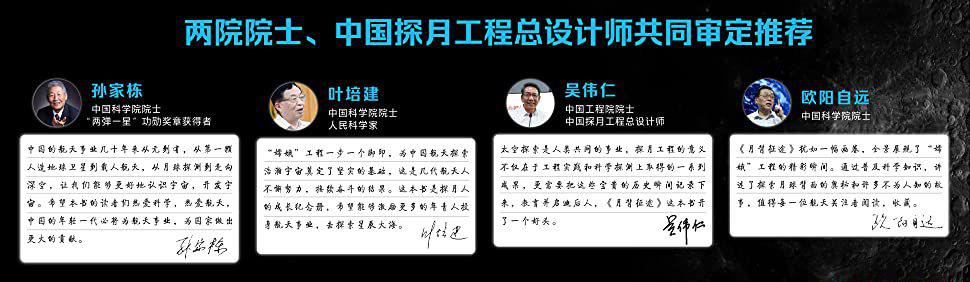 两院院士、中国探月工程总设计师共同审定推荐
孙家栋
中国科学院院士
“两弹一星”功勋奖章获得者
中国的航天事业几十年来从无到有，从第一颗
人造地球卫星到载人航天，从月球探测到走向
深空，让我们能够更好地认识宇宙，开发宇
宙。希望本书的读者们热爱科学，热爱航天，
中国的年轻一代必将为航天事业，为国家做出
更大的贡献。
孙家栋
叶培建
中国科学院院士
人民科学家
“嫦娥”工程一步一个脚印，为中国航天探索
浩瀚宇宙奠定了坚实的基础，这是几代航天人
不懈努力、接续奋斗的结果。这本书是探月人
的成长纪念册，希望能够激励更多的年青人投
身航天事业，去探索星辰大海。
叶培建
吴伟仁
中国工程院院士
中国探月工程总设计师
太空探索是人类共同的事业，探月工程的意义
不仅在于工程实践和科学探测上取得的一系列
成果，更需要把这些宝贵的历史瞬间记录下
来，教育并启迪后人，《月背征途》这本书开
了一个好头。
吴伟仁
欧阳自远
中国科学院院士
《月背征途》犹如一幅画卷，全景展现了“嫦
娥”工程的精彩瞬间。通过普及科学知识，讲
述了探索月球背面的奥秘和许多不为人知的故
事，值得每一位航天关注者阅读、收藏。
欧阳自远